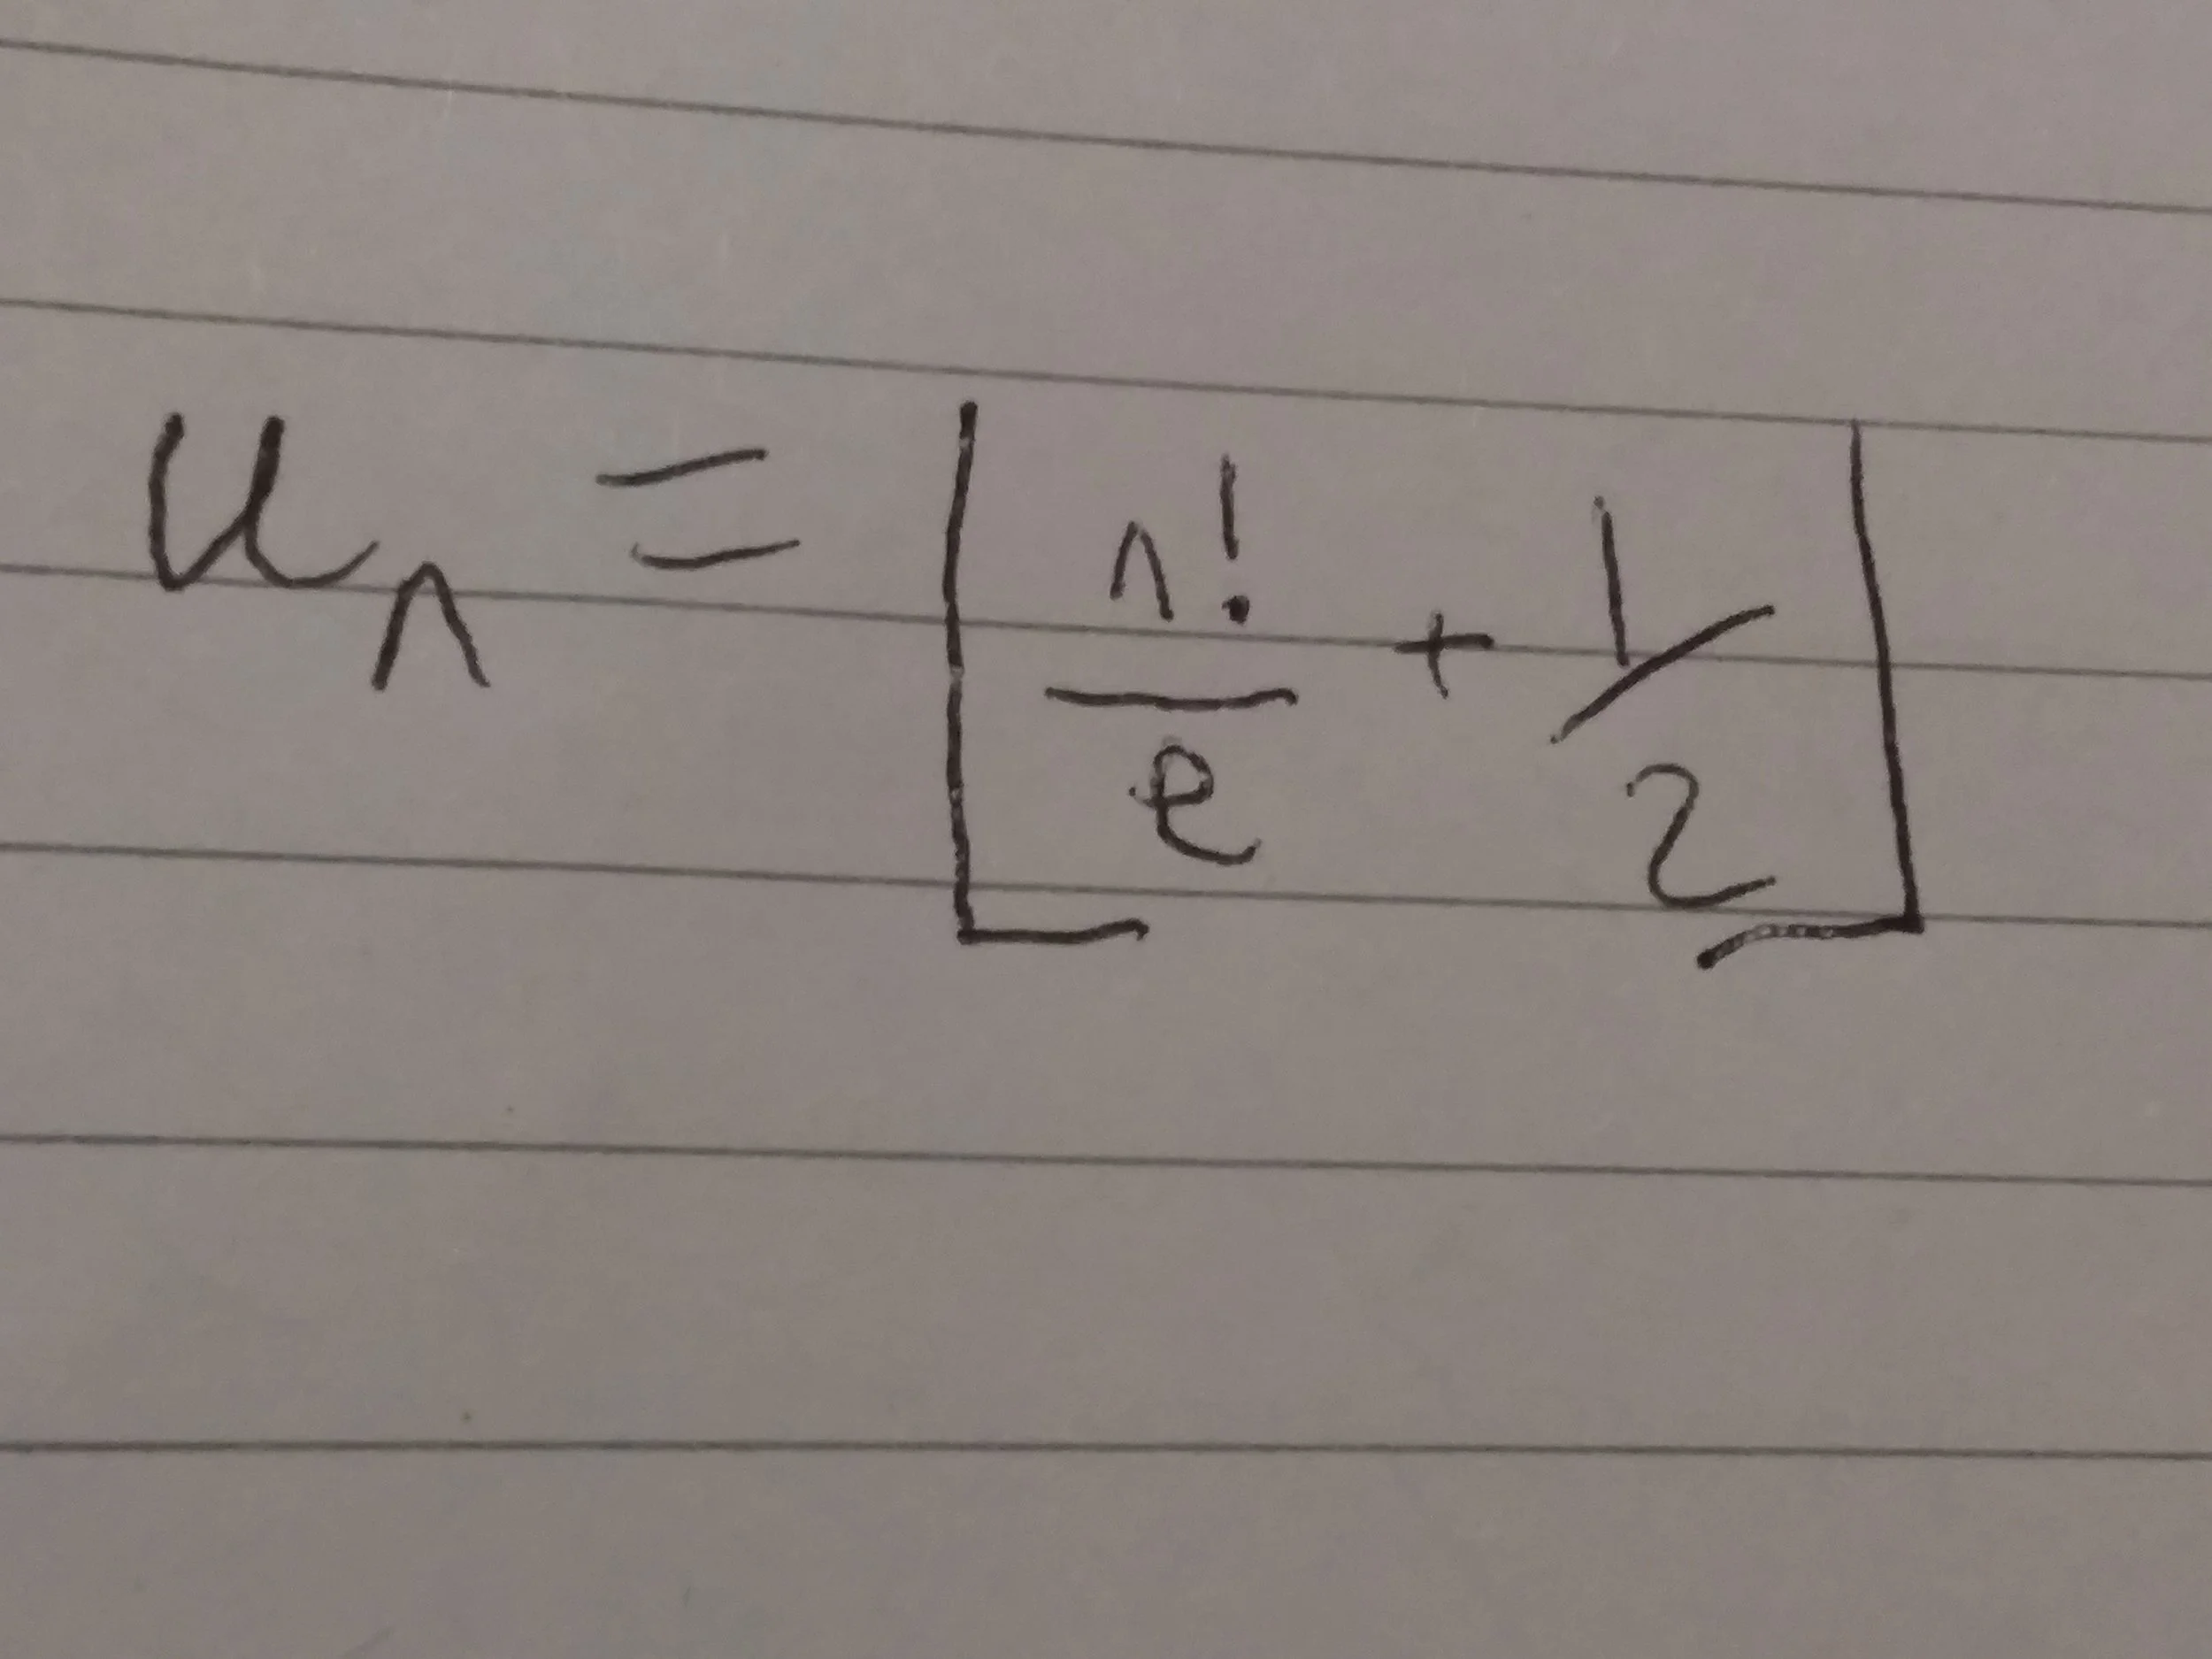 uₙ = ⌊n!/e + 1/2⌋